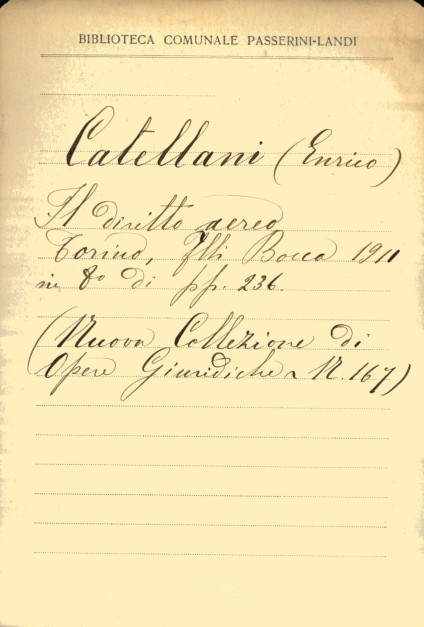 BIBLIOTECA COMUNALE PASSERINI-LANDI
Catellani (Enrico)
Il diritto aereo
Torino, Flli Bocca 1911
in 8o di pp. 236.
(Nuova Collezione di
Opere Giuridiche N. 167)